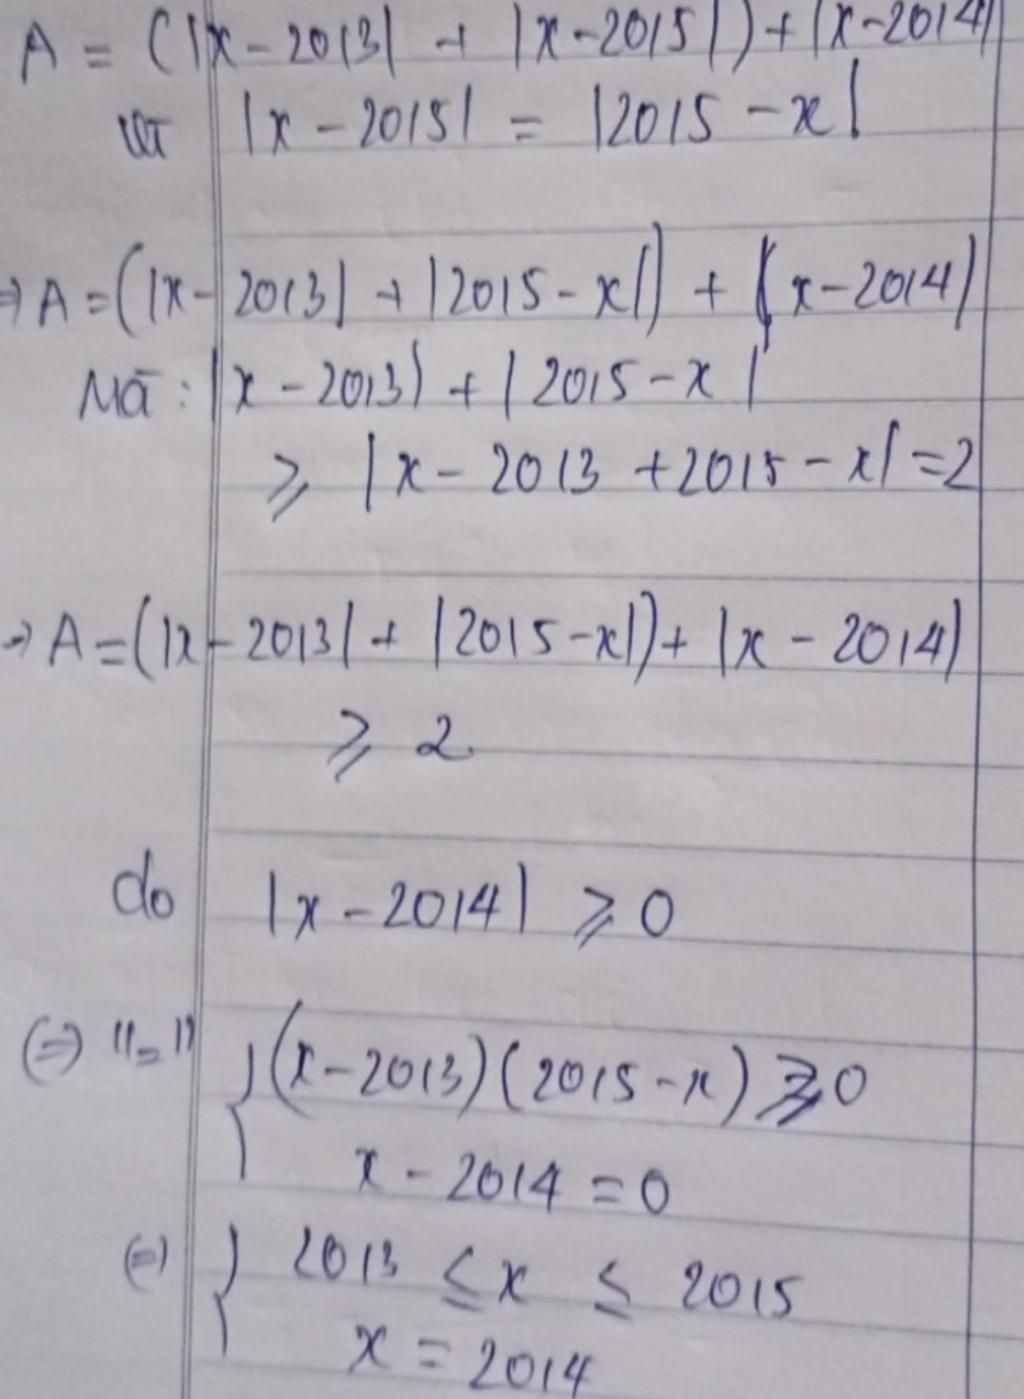 A = (|x - 2013| + |x - 2015|) + |x - 2014|
và |x - 2015| = |2015 - x|
⇒ A = (|x - 2013| + |2015 - x|) + |x - 2014|
Mà : |x - 2013| + |2015 - x|
⩾ |x - 2013 + 2015 - x| = 2
→ A = (|x - 2013| + |2015 - x|) + |x - 2014|
⩾ 2
do |x - 2014| ⩾ 0
(=) "=" { (x - 2013)(2015 - x) ⩾ 0
x - 2014 = 0
(=) { 2013 ≤ x ≤ 2015
x = 2014